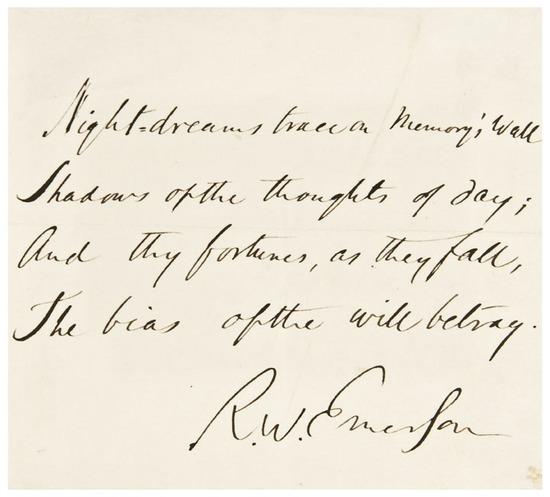 Night-dreams trace on Memory's Wall
Shadows of the thoughts of day;
And thy fortunes, as they fall,
The bias of the will betray.
R. W. Emerson